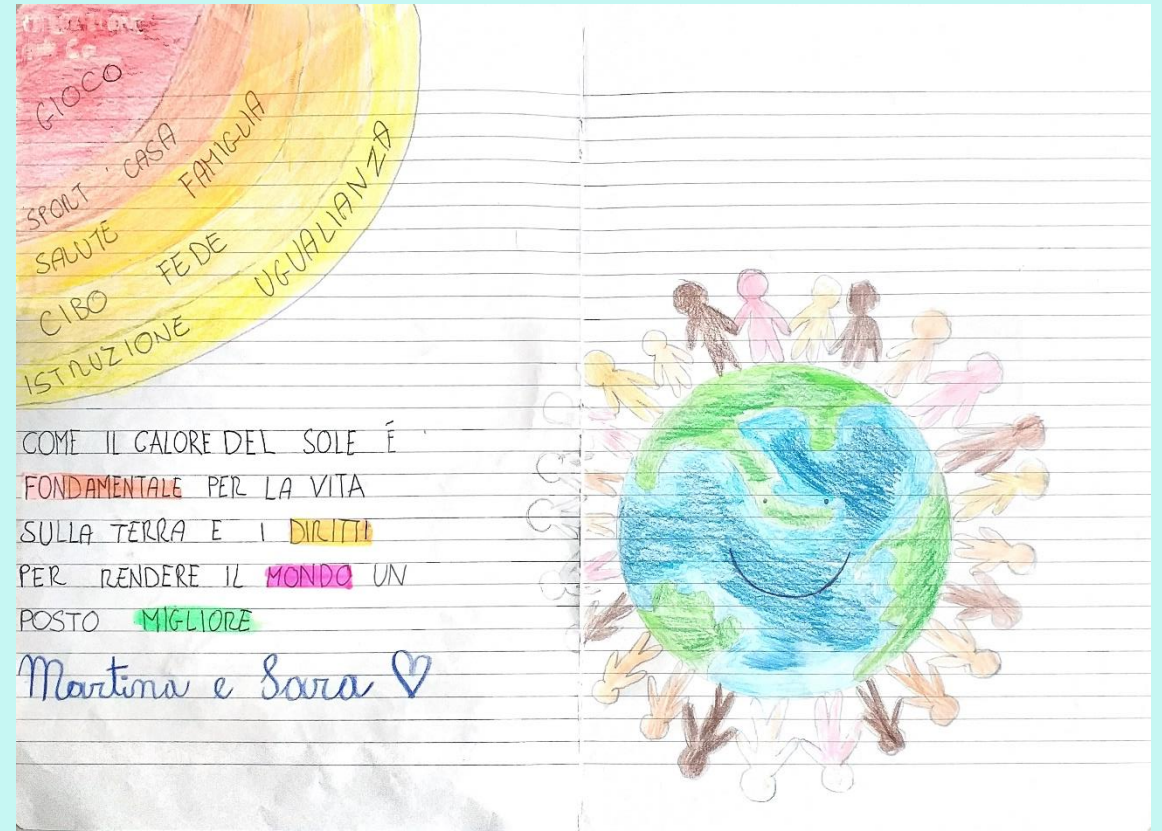 GIOCO
SPORT CASA
SALUTE FAMIGLIA
CIBO FEDE
ISTRUZIONE UGUALIANZA
COME IL CALORE DEL SOLE É
FONDAMENTALE PER LA VITA
SULLA TERRA E I DIRITTI
PER RENDERE IL MONDO UN
POSTO MIGLIORE
Martina e Sara